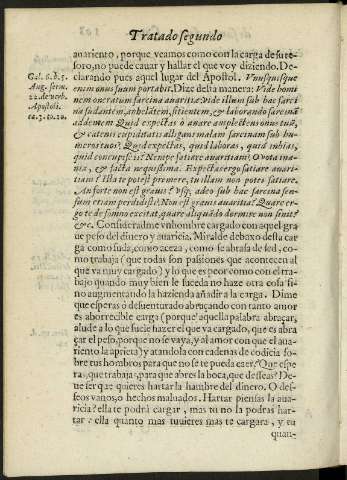 Tratado segundo
auariento, porque veamos como con la carga de su te-
soro, no puede cauar y hallar el que voy diziendo. De-
Gal. 6. b. 5.
clarando pues aquel lugar del Apostol. Vnusquisque
Aug. serm.
enim onus suum portabit. Dize desta manera: Vide homi
22. de verb.
nem oneratum sarcina auaritiæ: vide illum sub hac sarci
Apostoli.
na sudantem, anhelantem, sitientem, & laborando sarcinã
ca. 3. to. 10.
addentem. Quid expectas ò auare amplectens onus tuũ,
& catenis cupiditatis alligans malam sarcinam sub hu-
meros tuos? Quid expectas, quid laboras, quid inhias,
quid concupiscis? Nempe satiare auaritiam? O vota ina-
nia, & facta nequissima. Expectas ergo satiare auari-
tiam? Illa te potest premere, tu illam non potes satiare.
An forte non est grauis? vsq; adeo sub hac sarcina sen-
sum etiam perdidisti? Non est grauis auaritia? Quare er-
go te de somno excitat, quare aliquãdo dormire non sinit?
&c. Consideradme vn hombre cargado con aquel gra-
ue peso del dinero y auaricia. Miralde debaxo desta car
ga como suda, como aceza, como se abrasa de sed, co-
mo trabaja (que todas son passiones que acontecen al
que va muy cargado) y lo que es peor como con el tra-
bajo quando muy bien le suceda no haze otra cosa si-
no augmentando la hazienda añadir a la carga. Dime
que esperas ò desuenturado abraçando con tanto amor
es aborrecible carga (porque aquella palabra abraçar,
alude a lo que suele hazer el que va cargado, que es abra
çar el peso, porque no se vaya, y al amor con que el aua-
riento la aprieta) y atandola con cadenas de codicia so-
bre tus hombros para que no se te pueda caer? Que espe
ras, que trabajas, para que abres la boca, que desseas? De-
ue ser que quieres hartar la hambre del dinero. O des-
seos vanos, o hechos maluados. Hartar piensas la aua-
ricia? ella te podrà cargar, mas tu no la podras har-
tar: ella quanto mas tuuieres mas te cargara, y tu
quan-